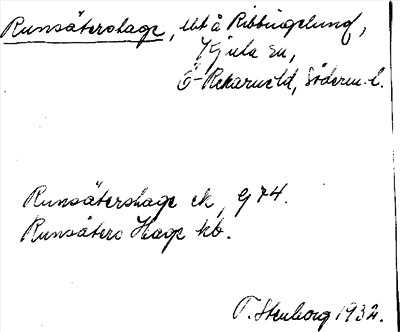 Runsätershage, lht å Ribbingelund,
Kjula sn,
Ö-Rekarne hd, Söderm. l.
Runsätershage ek, G 74.
Runsäters Hage kb.
T. Stenborg 1932.